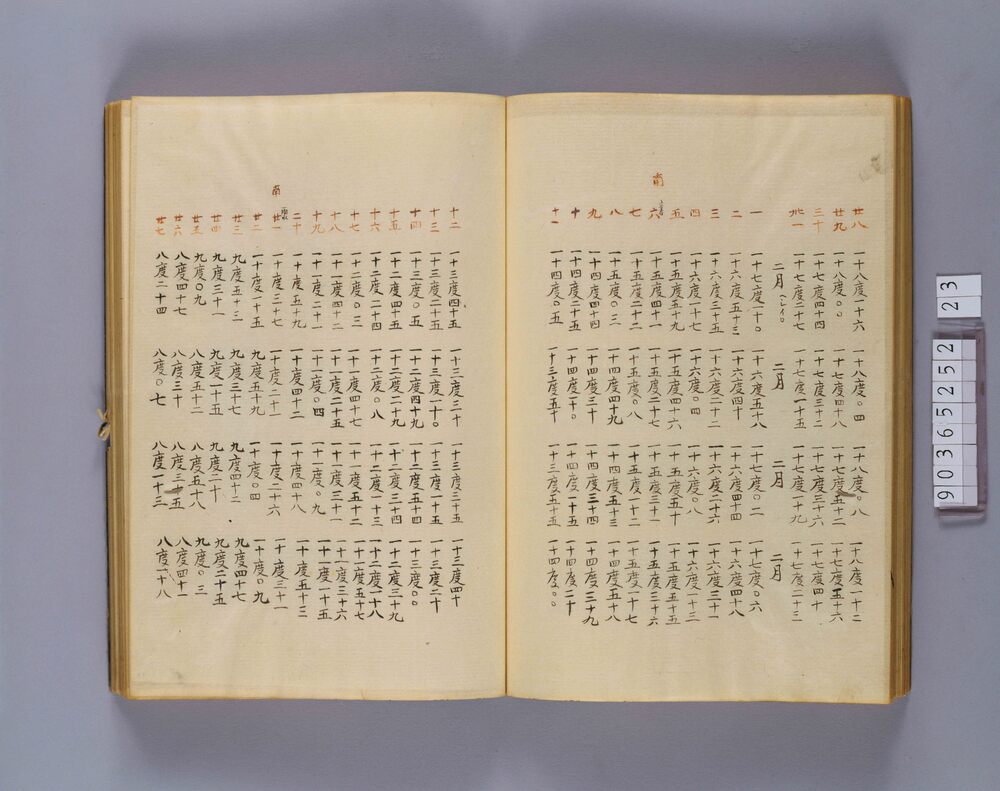 南
廿八 一十八度一十六 一十八度〇四 一十八度〇八 一十八度一十二
廿九 一十八度〇〇 一十七度四十八 一十七度五十二 一十七度五十六
三十 一十七度四十四 一十七度三十二 一十七度三十六 一十七度四十
卅一 一十七度二十七 一十七度一十五 一十七度一十九 一十七度二十三
二月 二月 二月 二月
一 一十七度一十〇 一十六度五十八 一十七度〇二 一十七度〇六
二 一十六度五十三 一十六度四十 一十六度四十四 一十六度四十八
三 一十六度三十五 一十六度二十二 一十六度二十六 一十六度三十一
四 一十六度一十七 一十六度〇四 一十六度〇八 一十六度一十三
五 一十五度五十九 一十五度四十六 一十五度五十 一十五度五十五
六 一十五度四十一 一十五度二十七 一十五度三十一 一十五度三十六
七 一十五度二十二 一十五度〇八 一十五度一十二 一十五度一十七
八 一十五度〇三 一十四度四十九 一十四度五十三 一十四度五十八
九 一十四度四十四 一十四度三十 一十四度三十四 一十四度三十九
十 一十四度二十五 一十四度一十〇 一十四度一十五 一十四度二十
十一 一十四度〇五 一十三度五十 一十三度五十五 一十四度〇〇
南
十二 一十三度四十五 一十三度三十 一十三度三十五 一十三度四十
十三 一十三度二十五 一十三度一十〇 一十三度一十五 一十三度二十
十四 一十三度〇五 一十二度四十九 一十二度五十四 一十三度〇〇
十五 一十二度四十五 一十二度二十九 一十二度三十四 一十二度三十九
十六 一十二度二十四 一十二度〇八 一十二度一十三 一十二度一十八
十七 一十二度〇三 一十一度四十七 一十一度五十二 一十一度五十七
十八 一十一度四十二 一十一度二十五 一十一度三十一 一十一度三十六
十九 一十一度二十一 一十一度〇四 一十一度〇九 一十一度一十五
二十 一十度五十九 一十度四十二 一十度四十八 一十度五十三
廿一 一十度三十七 一十度二十一 一十度二十六 一十度三十一
廿二 一十度一十五 九度五十九 一十度〇四 一十度〇九
廿三 九度五十三 九度三十七 九度四十二 九度四十七
廿四 九度三十一 九度一十五 九度二十 九度二十五
廿五 九度〇九 八度五十二 八度五十八 九度〇三
廿六 八度四十七 八度三十 八度三十五 八度四十一
廿七 八度二十四 八度〇七 八度一十三 八度一十八
90365252
23